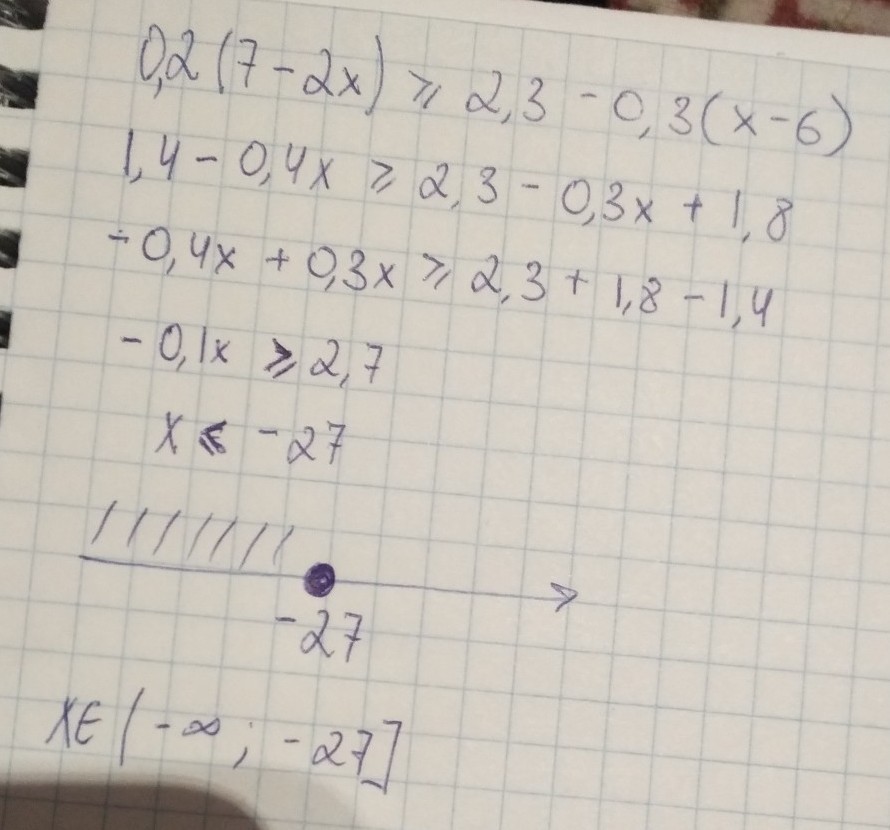 0,2(7-2x) ⩾ 2,3 - 0,3(x-6)
1,4 - 0,4x ⩾ 2,3 - 0,3x + 1,8
-0,4x + 0,3x ⩾ 2,3 + 1,8 - 1,4
-0,1x ⩾ 2,7
x ⩽ -27
-27
x∈(-∞; -27]